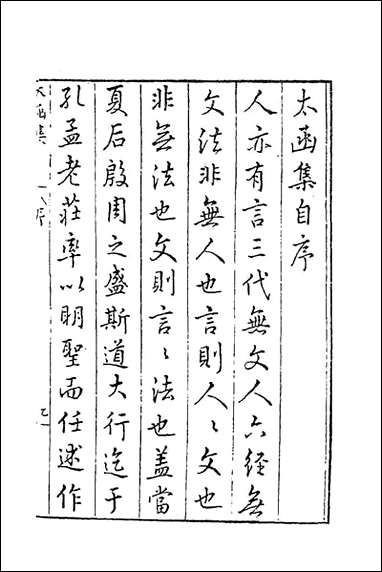 太函集自序
人亦有言三代無文人六經無
文法非無人也言則人〻文也
非無法也文則言〻法也蓋當
夏后殷周之盛斯道大行迄于
孔孟老莊率以明聖而任述作
太函集 序